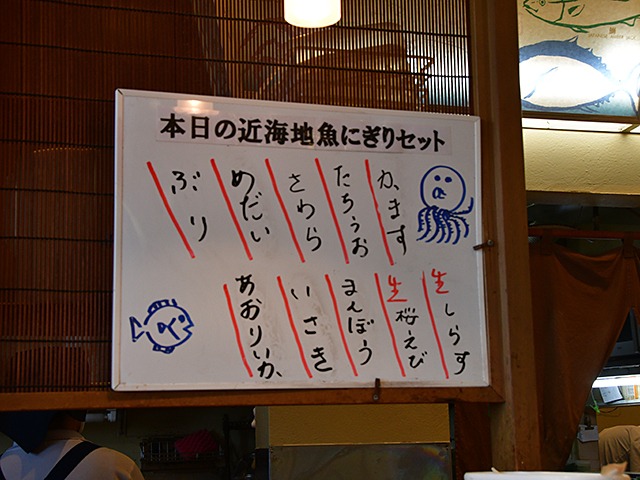 本日の近海地魚にぎりセット
かます
たちうお
さわら
めだい
ぶり
生しらす
生桜えび
まんぼう
いさき
あおりいか